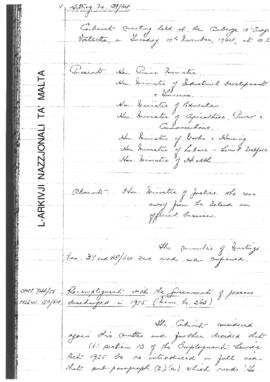 Sitting No. 39/64
Cabinet meeting held at the Auberge d'Aragon
Valletta, on Tuesday 17th November, 1964, at
Present: Hon. Prime Minister
Hon. Minister of Industrial Development
& Finance.
Hon. Minister of Education
Hon. Minister of Agriculture, Power &
Communications.
Hon. Minister of Works & Housing
Hon. Minister of Labour & Social Welfare
Hon. Minister of Health.
Absent: Hon. Minister of Justice who was
away from the Island on
official business.
The minutes of Meetings
Nos. 37 and 38/64 were read and confirmed.
Re-employment with the Government of persons
discharged in 1955
The Cabinet considered
again this matter and further decided that
(i) section 13 of the Employment
Act 1955 be re-introduced in full and
that sub-paragraph (2)(a) which reads "
L-ARKIVJI NAZZJONALI TA' MALTA